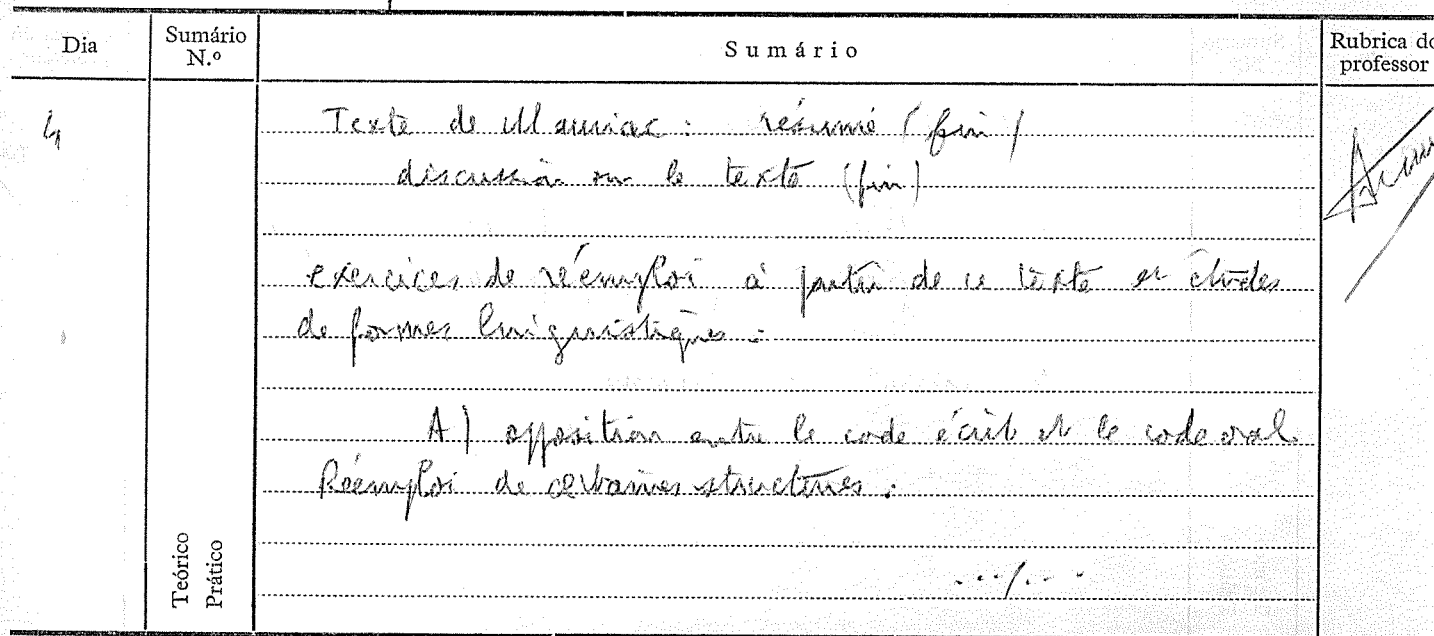 Dia
Sumário N.º
Sumário
Rubrica do professor
4
Texte de Mauriac : résumé (fin)
discussion sur le texte (fin)
exercices de réemploi à partir de ce texte et études
de formes linguistiques :
A) opposition entre le code écrit et le code oral
Réemploi de certaines structures.
.../...
Teórico
Prático